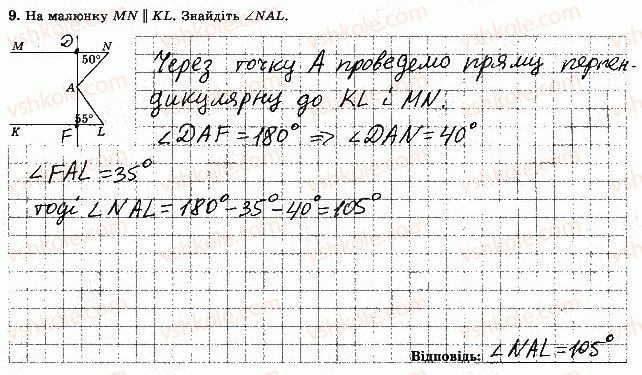 9. На малюнку MN ∥ KL. Знайдіть ∠NAL.
M D N
50°
A
55°
K F L
Через точку A проведемо пряму перпен-
дикулярну до KL і MN.
∠DAF = 180° => ∠DAN = 40°
∠FAL = 35°
тоді ∠NAL = 180° - 35° - 40° = 105°
Відповідь: ∠NAL = 105°
vshkole.com